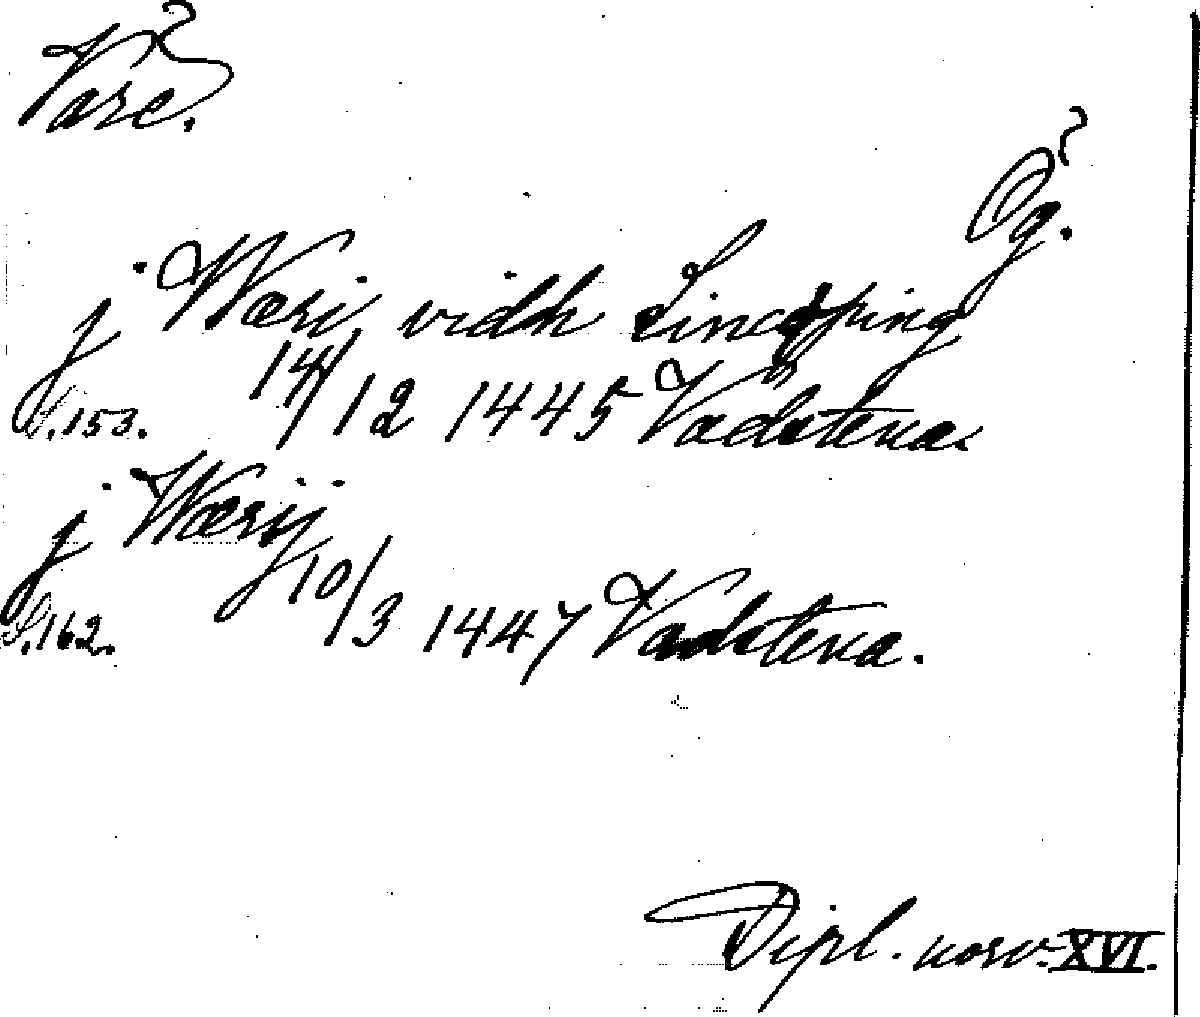 Vare.?
Ög.?
j Wæri vidh Lincøping
S. 153. 14/12 1445 Vadstena.
j Wærij
S. 162. 10/3 1447 Vadstena.
Dipl. norv. XVI.